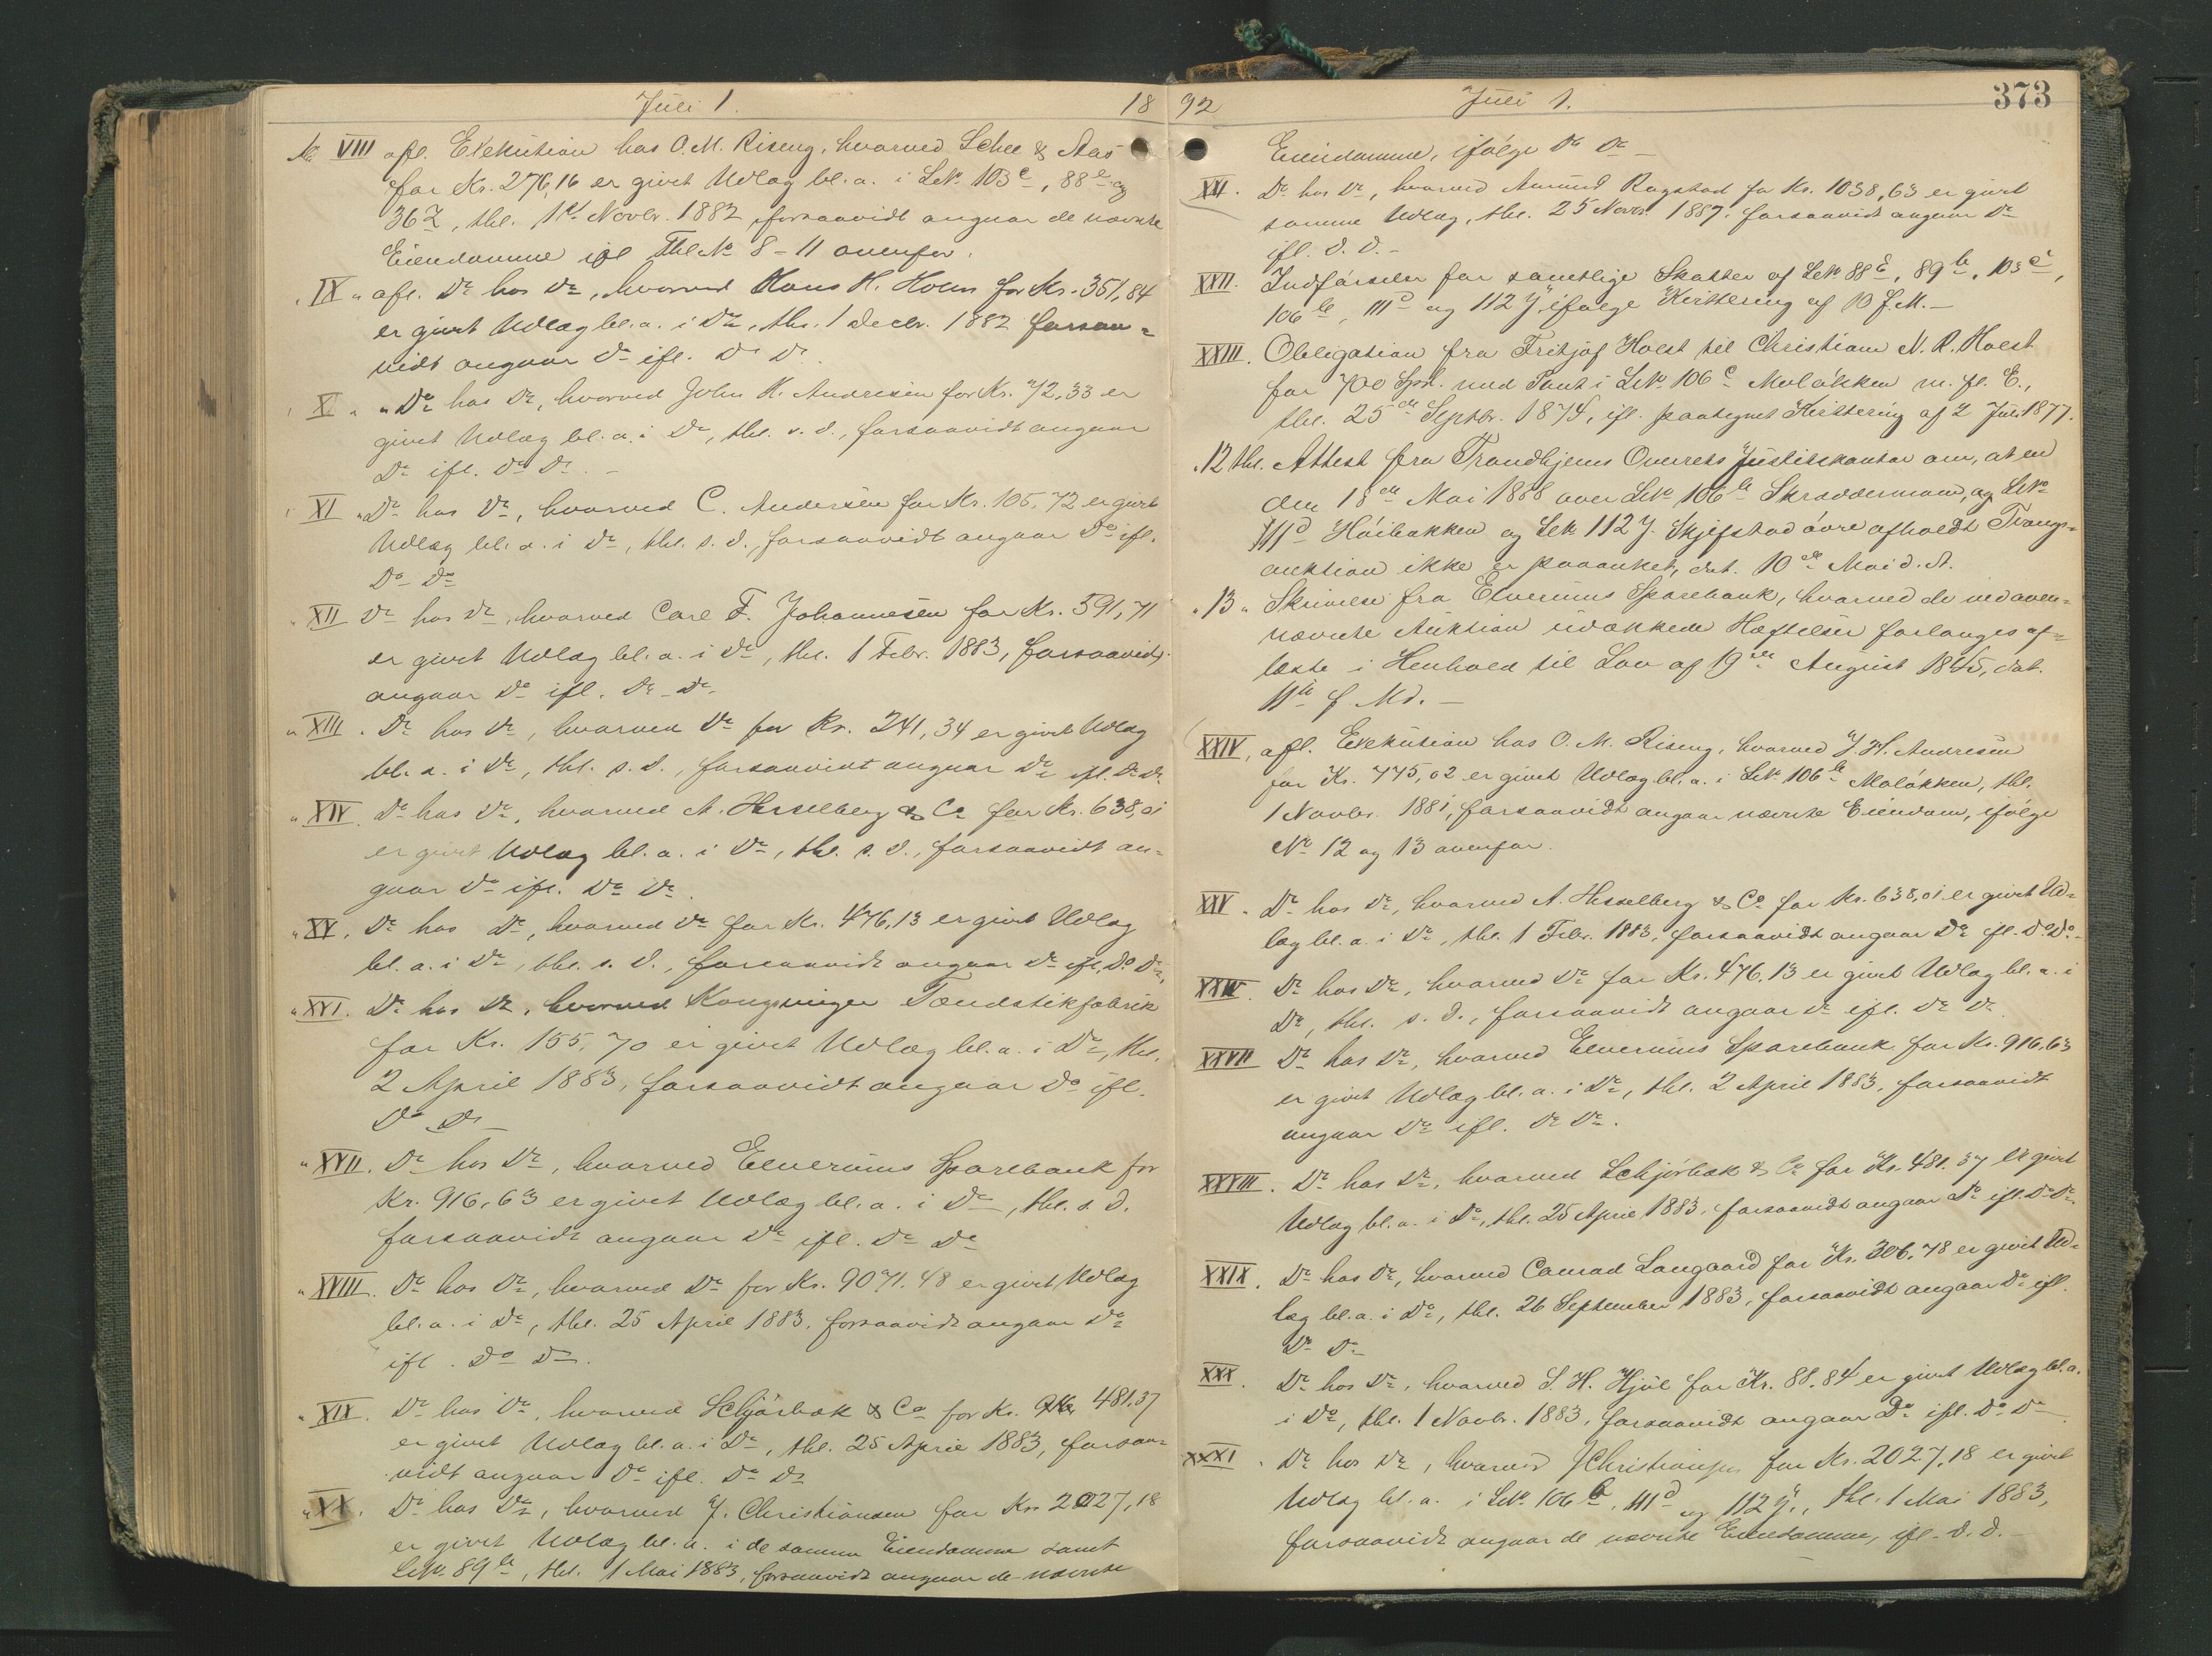 Juli 1. 18
No VIII afl. Exekution hos O. M. Riseng, hvorved Schee & Aas
for Kr. 276,16 er givet Udlæg bl. a. i LNo 103c, 88e og
36z, thl. 1st Novbr. 1882 forsaavidt angaar de nævnte
Eiendomme ifl Thl No 8 - 11 ovenfor.
" IX " afl. Do hos Do, hvorved Hans H. Holm for Kr. 351,84
er givet Udlæg bl. a. i Do, thl. 1 Decbr. 1882 forsaa-
vidt angaar Do ifl. Do Do.
" X " " Do hos Do, hvorved John H. Andresen for Kr. 72,33 er
givet Udlæg bl. a. i Do, thl. s. d., forsaavidt angaar
Do ifl. Do Do. -
" XI " Do hos Do, hvorved C. Andersen for Kr. 105,72 er givet
Udlæg bl. a. i Do, thl. s. d., forsaavidt angaar Do ifl.
Do Do
" XII Do hos Do, hvorved Carl F. Johannesen for Kr. 591,71
er givet Udlæg bl. a. i Do, thl. 1 Febr. 1883, forsaavidt
angaar Do ifl. Do Do.
" XIII . Do hos Do, hvorved Do for Kr. 241,34 er givet Udlæg
bl. a. i Do, thl. s. d., forsaavidt angaar Do ifl. Do Do.
" XIV . Do hos Do, hvorved A. Hesselberg & Co for Kr. 638,01
er givet Udlæg bl. a. i Do, thl. s. d., forsaavidt an-
gaar Do ifl. Do Do.
" XV . Do hos Do, hvorved Do for Kr. 476,13 er givet Udlæg
bl. a. i Do, thl. s. d., forsaavidt angaar Do ifl. Do Do,
" XVI . Do hos Do, hvorved Kongsvinger Tændstikfabrik
for Kr. 155,70 er givet Udlæg bl. a. i Do, thl.
2 April 1883, forsaavidt angaar Do ifl.
Do Do -
" XVII . Do hos Do, hvorved Elverums Sparebank for
Kr. 916,63 er givet Udlæg bl. a. i Do, thl. s. d.
forsaavidt angaar Do ifl. Do Do
" XVIII . Do hos Do, hvorved Do for Kr. 9071.48 er givet Udlæg
bl. a. i Do, thl. 25 April 1883, forsaavidt angaar Do
ifl. Do Do.
" XIX . Do hos Do, hvorved Schjörbok & Co for Kr. 481,37
er givet Udlæg bl. a. i Do, thl. 25 April 1883, forsaa-
vidt angaar Do ifl. Do Do
" XX . Do hos Do, hvorved J. Christiansen for Kr. 2027,18
er givet Udlæg bl. a. i de samme Eiendomme samt
LNo. 89b, thl. 1 Mai 1883, forsaavidt angaar de nævnte
92 Juli 1. 373
Eiendomme, ifølge Do Do -
XXI . Do hos Do, hvorved Amund Rogstad for Kr. 1038,63 er givet
samme Udlæg, thl. 25 Novbr. 1887, forsaavidt angaar Do
ifl. d. d. -
XXII . Indførselen for samtlige Skatter af LNo 88e, 89b, 103c,
106b, 111d og 112y, ifølge Kvittering af 10 f. M. -
XXIII . Obligation fra Fritjof Holst til Christiane N. R. Holst
for 700 Spd. med Pant i LNo 106c Moløkken m. fl. E.,
thl. 25de Septbr. 1874, ifl. paategnet Kvittering af 2 Juli 1877.
" 12 thl. Attest fra Trondhjems Overrets Justitskontor om, at en
den 18de Mai 1888 over LNo 106b Skræddermoen, og LNo
111d Høibakken og LNo 112y. Skjefstad øvre afholdt Tvangs-
auktion ikke er paaanket, dat. 10de Mai d. A.
" 13 " Skrivelse fra Elverums Sparebank, hvorved de ved oven-
nævnte Auktion udækkede Hæftelser forlanges af-
læste i Henhold til Lov af 19de August 1845, dat.
11te f. Md. -
XXIV, afl. Exekution hos O. M. Riseng, hvorved J. H. Andresen
for Kr. 775,02 er givet Udlæg bl. a. i LNo 106b Moløkken, thl.
1 Novbr. 1881, forsaavidt angaar nævnte Eiendom, ifølge
No 12 og 13 ovenfor.
XXV . Do hos Do, hvorved A. Hesselberg & Co for Kr. 638,01 er givet Ud-
læg bl. a. i Do, thl. 1 Febr. 1883, forsaavidt angaar Do ifl. Do Do.-
XXVI . Do hos Do, hvorved Do for Kr. 476,13 er givet Udlæg bl. a. i
Do, thl. s. d., forsaavidt angaar Do ifl. Do Do.
XXVII Do hos Do, hvorved Elverums Sparebank for Kr. 916,63
er givet Udlæg bl. a. i Do, thl. 2 April 1883, forsaavidt
angaar Do ifl. Do Do.
XXVIII . Do hos Do, hvorved Schjörbok & Co for Kr. 481.37 er givet
Udlæg bl. a. i Do, thl. 25 April 1883, forsaavidt angaar Do ifl. Do Do.
XXIX . Do hos Do, hvorved Conrad Langaard for Kr. 306,78 er givet Ud-
læg bl. a. i Do, thl. 26 September 1883, forsaavidt angaar Do ifl.
Do Do
XXX . Do hos Do, hvorved S. H. Hjul for Kr. 88,84 er givet Udlæg bl. a.
i Do, thl. 1 Novbr. 1883, forsaavidt angaar Do ifl. Do Do.
XXXI . Do hos Do, hvorved J Christiansen for Kr. 2027,18 er givet
Udlæg bl. a. i LNo. 106b, 111d og 112y., thl. 1 Mai 1883,
forsaavidt angaar de nævnte Eiendomme, ifl. d. d. -